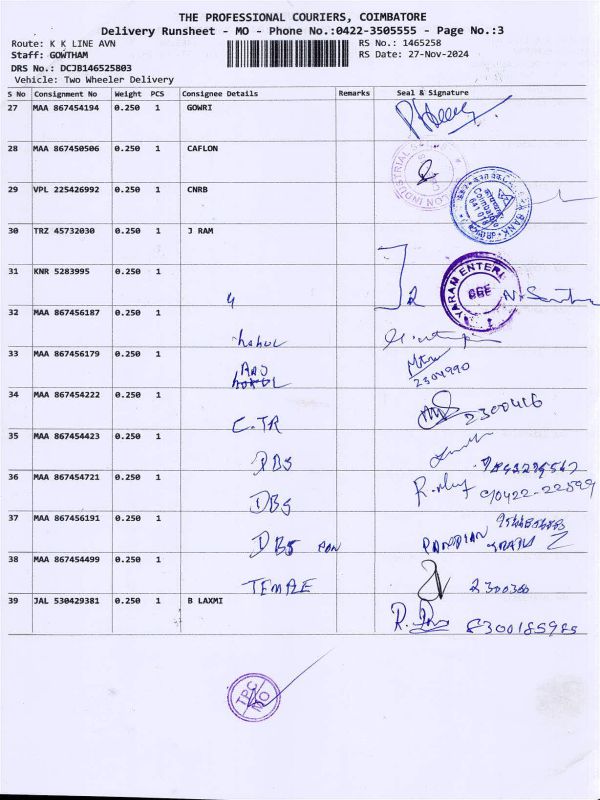 THE PROFESSIONAL COURIERS, COIMBATORE
Delivery Runsheet - MO - Phone No.:0422-3505555 - Page No.:3
Route: K K LINE AVN RS No.: 1465258
Staff: GOWTHAM RS Date: 27-Nov-2024
DRS No.: DCJB146525803
Vehicle: Two Wheeler Delivery
S No Consignment No Weight PCS Consignee Details Remarks Seal & Signature
27 MAA 867454194 0.250 1 GOWRI
28 MAA 867450506 0.250 1 CAFLON
29 VPL 225426992 0.250 1 CNRB
30 TRZ 45732030 0.250 1 J RAM
31 KNR 5283995 0.250 1
32 MAA 867456187 0.250 1
33 MAA 867456179 0.250 1
2304990
34 MAA 867454222 0.250 1 C.TR 2300416
35 MAA 867454423 0.250 1 DBS
36 MAA 867454721 0.250 1 DBS
37 MAA 867456191 0.250 1 DBS PANDIAN
38 MAA 867454499 0.250 1 TEMPLE 2300300
39 JAL 530429381 0.250 1 B LAXMI 8300185985
TPC
MO